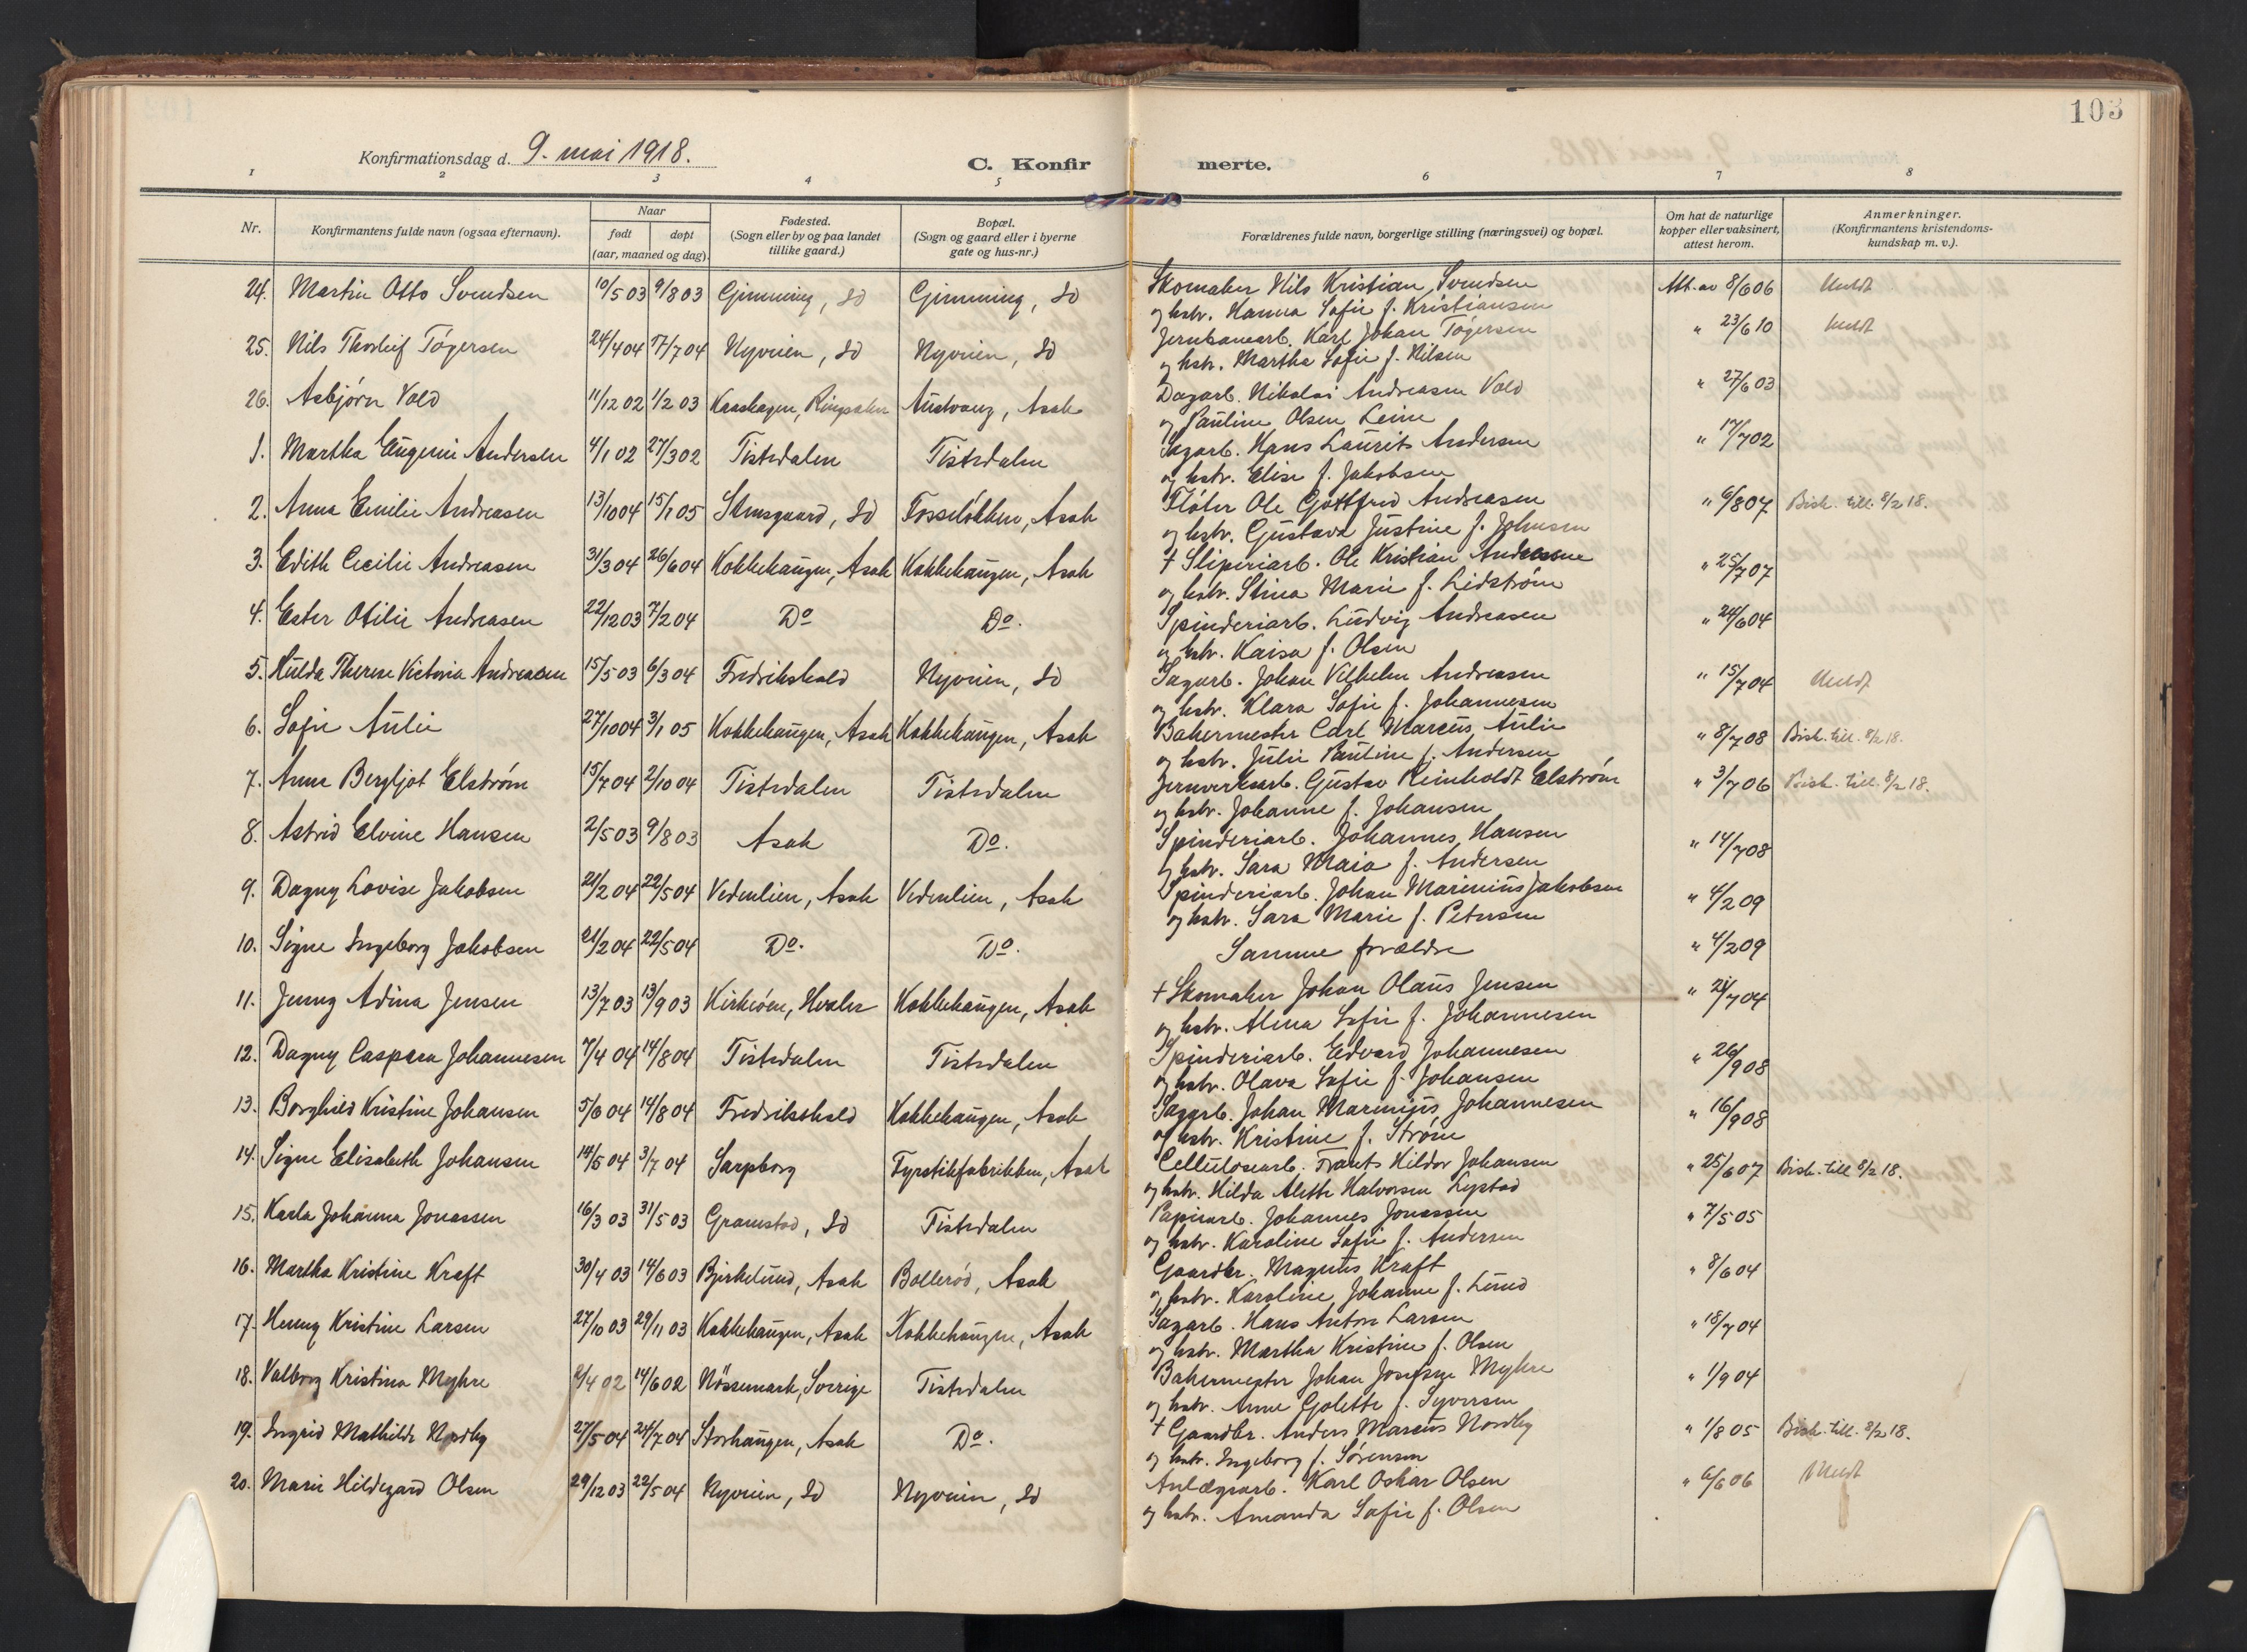 103
Konfirmationsdag d. 9. mai 1918.
C. Konfir merte.
1 2 3 4 5 6 7 8
Nr. Konfirmantens fulde navn (ogsaa efternavn). Naar født døpt (aar, maaned og dag). Fødested. (Sogn eller by og paa landet tillike gaard.) Bopæl. (Sogn og gaard eller i byerne gate og hus-nr.) Forældrenes fulde navn, borgerlige stilling (næringsvei) og bopæl. Om hat de naturlige kopper eller vaksinert, attest herom. Anmerkninger. (Konfirmantens kristendoms-kundskap m. v.).
24. Martin Otto Svendsen 10/5 03 9/8 03 Gimming, Id Gimming, Id Skomaker Nils Kristian Svendsen Att. av 8/6 06
og hstr. Hanna Sofie f. Kristiansen
25. Nils Thorleif Tøgersen 24/4 04 17/7 04 Nyveien, Id Nyveien, Id Jernbanearb. Karl Johan Tøgersen " 23/6 10
og hstr. Martha Sofie f. Nilsen
26. Asbjørn Vold 11/12 02 1/2 03 Kaashagen, Ringsaker Austvang, Asak Dagarb. Nikolai Andreasen Vold " 27/6 03
og Pauline Olsen Leine
1. Martha Eugenie Andersen 4/1 02 27/3 02 Tistedalen Tistedalen Sagarb. Hans Laurits Andersen " 17/7 02
og hstr. Elise f. Jakobsen
2. Anna Emilie Andreasen 13/10 04 15/1 05 Stensgaard, Id Fosseløkken, Asak Fløter Ole Gottfred Andreasen " 6/8 07 Bisk. till. 8/2 18.
og hstr. Gustava Justine f. Johnsen
3. Edith Cecilie Andreasen 31/3 04 26/6 04 Kokkehaugen, Asak Kokkehaugen, Asak † Sliperiarb. Ole Kristian Andreasen " 25/7 07
og hstr. Stina Marie f. Lidstrøm
4. Ester Otilie Andreasen 22/12 03 7/2 04 Do Do. Spinderiarb. Ludvig Andreasen " 24/6 04
og hstr. Kaisa f. Olsen
5. Hulda Therese Victoria Andreasen 15/5 03 6/3 04 Fredrikshald Nyveien, Id Sagarb. Johan Vilhelm Andreasen " 15/7 04
og hstr. Klara Sofie f. Johannesen
6. Sofie Aulie 27/10 04 3/1 05 Kokkehaugen, Asak Kokkehaugen, Asak Bakermester Carl Marcus Aulie " 8/7 08 Bisk. till. 8/2 18.
og hstr. Julie Pauline f. Andersen
7. Anna Bergljot Elstrøm 15/7 04 2/10 04 Tistedalen Tistedalen Jernverksarb. Gustav Reinholdt Elstrøm " 3/7 06 Bisk. till. 8/2 18.
og hstr. Johanne f. Johansen
8. Astrid Elvine Hansen 2/5 03 9/8 03 Asak Do. Spinderiarb. Johannes Hansen " 14/7 08
og hstr. Sara Maia f. Andersen
9. Dagny Lovise Jakobsen 21/2 04 22/5 04 Vedenlien, Asak Vedenlien, Asak Spinderiarb. Johan Marinius Jakobsen " 4/2 09
og hstr. Sara Marie f. Petersen
10. Signe Ingeborg Jakobsen 21/2 04 22/5 04 Do. Do. Samme forældre " 4/2 09
11. Jenny Adina Jensen 13/7 03 13/9 03 Kirkeøen, Hvaler Kokkehaugen, Asak † Skomaker Johan Olaus Jensen " 21/7 04
og hstr. Alma Sofie f. Johannesen
12. Dagny Caspara Johannesen 7/4 04 14/8 04 Tistedalen Tistedalen Spinderiarb. Edvard Johannesen " 26/9 08
og hstr. Olava Sofie f. Johansen
13. Borghild Kristine Johansen 5/6 04 14/8 04 Fredrikshald Kokkehaugen, Asak Sagarb. Johan Marinius Johannesen " 16/9 08
og hstr. Kristine f. Strøm
14. Signe Elisabeth Johansen 14/5 04 3/7 04 Sarpsborg Fyrstikfabrikken, Asak Cellulosearb. Frants Hildor Johansen " 25/6 07 Bisk. till 8/2 18.
og hstr. Hilda Alette Halvorsen Lystad
15. Karla Johanna Jonassen 16/3 03 31/5 03 Gramstad, Id Tistedalen Papirarb. Johannes Jonassen " 7/5 05
og hstr. Karoline Sofie f. Andersen
16. Martha Kristine Kraft 30/4 03 14/6 03 Bjerkelund, Asak Bollerød, Asak Gaardbr. Magnus Kraft " 8/6 04
og hstr. Karoline Johanne f. Lund
17. Henny Kristine Larsen 27/10 03 29/11 03 Kokkehaugen, Asak Kokkehaugen, Asak Sagarb. Hans Anton Larsen " 18/7 04
og hstr. Martha Kristine f. Olsen
18. Valborg Kristina Myhre 8/4 02 14/6 02 Nössemark, Sverige Tistedalen Bakermester Johan Josefsen Myhre " 1/9 04
og hstr. Anne Golette f. Syversen
19. Ingrid Mathilde Nordby 27/5 04 24/7 04 Storhaugen, Asak Do. † Gaardbr. Anders Marcus Nordby " 1/8 05 Bisk. till. 8/2 18.
og hstr. Ingeborg f. Sørensen
20. Marie Hildegard Olsen 29/12 03 22/5 04 Nyveien, Id Nyveien, Id Anlægsarb. Karl Oskar Olsen " 6/6 06
og hstr. Amanda Sofie f. Olsen